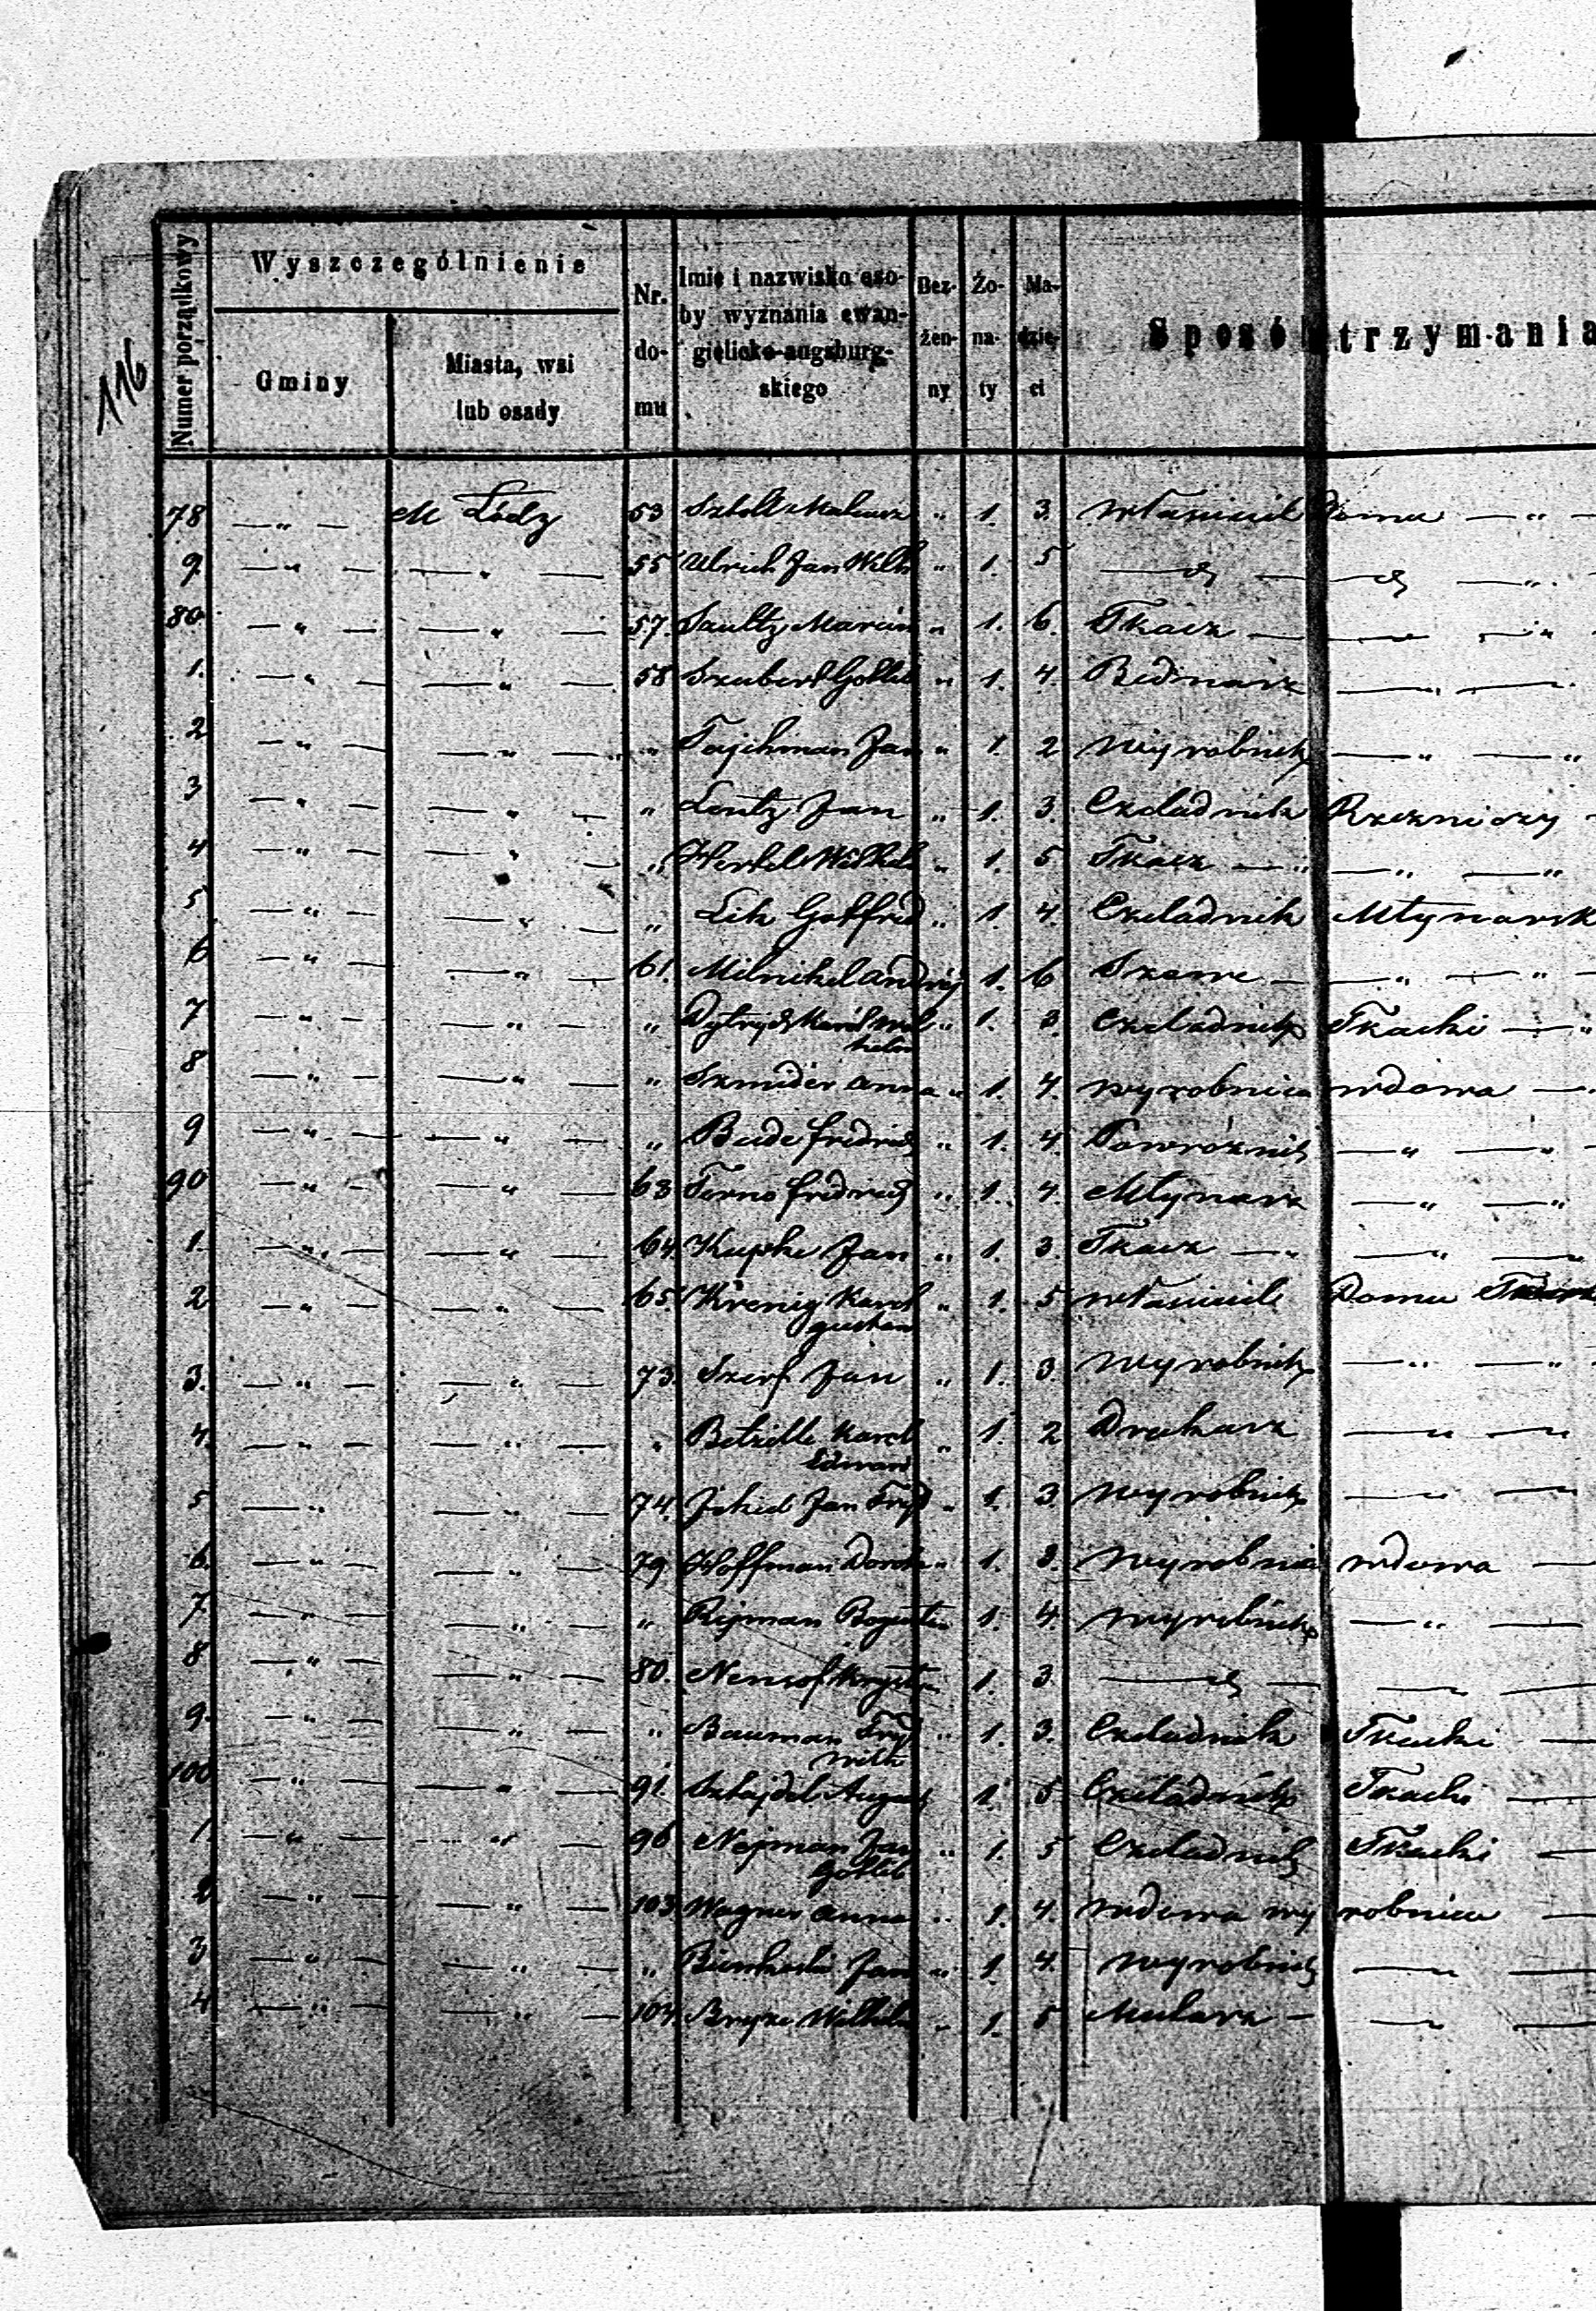 116
Numer porządkowy
Wyszczególnienie
Gminy
Miasta, wsi
lub osady
Nr.
do-
mu
Imię i nazwisko oso-
by wyznania ewan-
gielicko-augsburg-
skiego
Bez-
żen-
ny
Żo-
na-
ty
Ma-
dzie-
ci
Sposób utrzymania
78 — „ — M Łódź 53 „ 1. 3. Domu — „ —
9 — „ — — „ — 55 Ulrich Jan Wilh „ 1. 5 — „ —
80 — „ — — „ — 57. Szultz Marcin „ 1. 6. Tkacz —
1. — „ — — „ — 58 Szubert Gottlib „ 1. 4. Bednarz — „ —
2 — „ — — „ — „ Tajchman Jan „ 1. 2 wyrobnik — „ — „
3 — „ — — „ — „ Lentz Jan „ 1. 3. Czeladnik Rzezniczy
4 — „ — — „ — „ Hertel Wilhel „ 1. 5 Tkacz — „ — „ — „
5 — „ — — „ — „ Lik Gotfrid „ 1. 4. Czeladnik Młynarsk
6 — „ — — „ — 61. Milnikel Andrij 1. 6 — „ — „
7 — „ — — „ — „ Dytrych Karol Wil „ 1. 3. Czeladnik Tkacki — „
helm
8 — „ — — „ — „ Szmider Anna „ 1. 4. wyrobnica wdowa —
9 — „ — — „ — „ Bude Fridrich „ 1. 4. Powróznik — „ — „
90 — „ — — „ — 63 Ferno Fridrich „ 1. 4. Młynarz — „ — „
1. — „ — — „ — 64. Kupke Jan „ 1. 3. Tkacz — „ — „ —
2 — „ — — „ — 65. Krenig Karol „ 1. 5 własciciel Domu
gustaw
3. — „ — — „ — 73. Szerf Jan „ 1. 3. wyrobnik — „ — „
4. — „ — — „ — „ Karol „ 1. 2 Drukarz — „ —
Edward
5 — „ — — „ — 74. Jan Fryd „ 1. 3 wyrobnik — „ —
6. — „ — — „ — 79 Hoffman Dorota „ 1. 3. wyrobnica wdowa —
7. — „ — — „ — „ Rejman 1. 4. wyrobnik — „ —
8 — „ — — „ — 80. 1. 3. — „ —
9. — „ — — „ — „ Bauman Fryd „ 1. 3. Czeladnik Tkacki —
Wilh
100 — „ — — „ — 91. Sztajdel August 1. 5 Czeladnik Tkacki —
1. — „ — — „ — 96 Nejman Jan „ 1. 5 Czeladnik Tkacki —
Gottlib
2 — „ — — „ — 103 Wagner Anna „ 1. 4. wdowa wyrobnica —
3 — „ — — „ — „ Jan „ 1. 4. wyrobnik — „ —
4 — „ — — „ — 104. Wilhelm „ 1. 5 Mularz — „ —